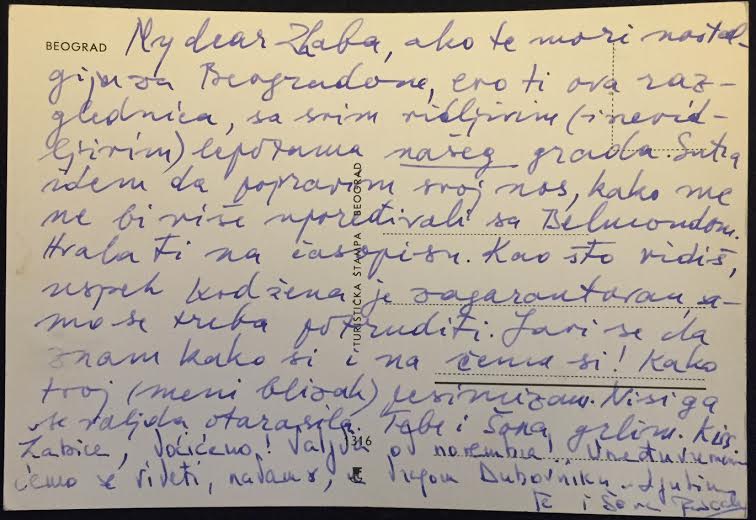 BEOGRAD
My dear Žaba, ako te mori nostal-
gija za Beogradom, evo ti ova raz-
glednica, sa svim vidljivim (i nevid-
ljivim) lepotama našeg grada. Sutra
idem da popravim svoj nos, kako me
ne bi više upoređivali sa Belmondom.
Hvala ti na časopisu. Kao što vidiš,
uspeh kod žena je zagarantovan, sa-
mo se treba potruditi. Javi se da
znam kako si i na čemu si! Kako
tvoj (meni blizak) pesimizam. Nisi ga
se valjda otarasila. Tebe i Šona, grlim. Kiss
Žabice, doćićemo! Valjda od novembra. U međuvremenu
ćemo se videti, nadam se, u tvom Dubrovniku. Ljubim
Te i Šona
TURISTIČKA ŠTAMPA BEOGRAD
316